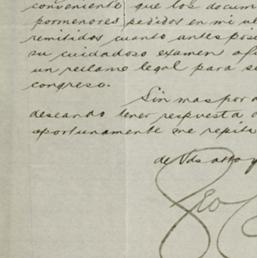 conveniente que los docum
pormenores pedidos en mi ul
remitidos cuanto antes pose
su cuidadoso examen a fi
un reclamo legal para se
congreso.
Sin mas por a
deseando tener respuesta o
oportunamente me repito
de Vds atto y
Geo